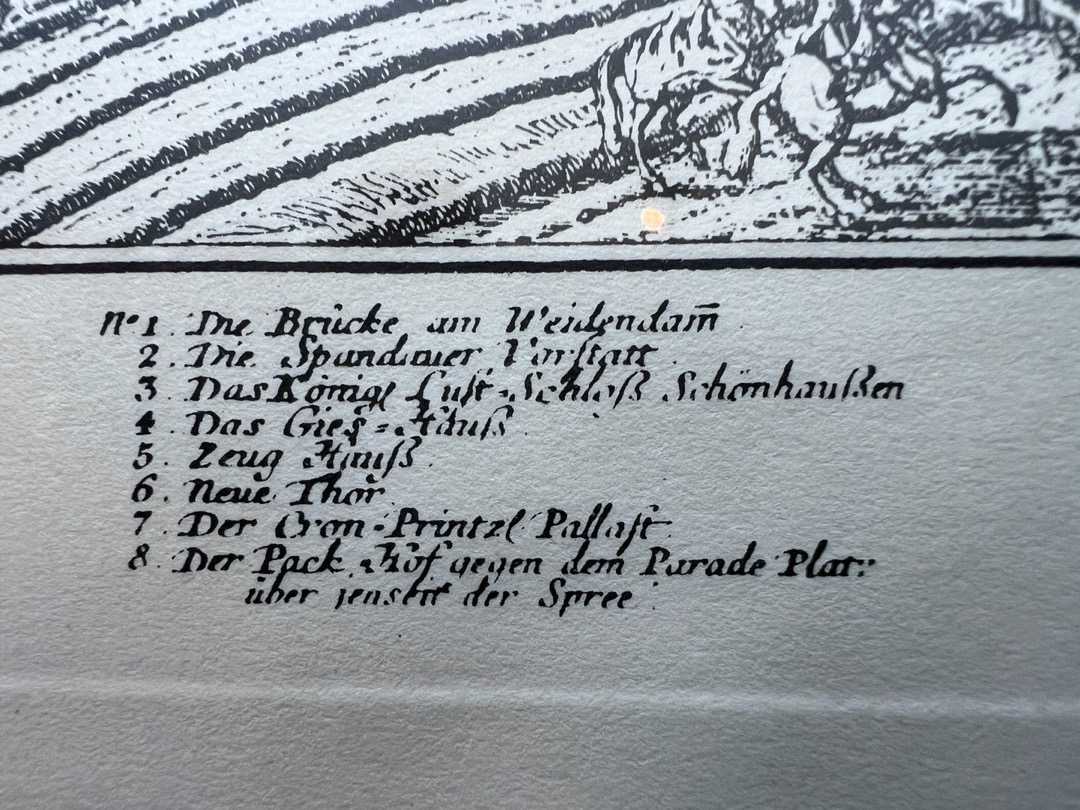 No 1. Die Brücke am Weidendam̅
2. Die Spandauer Vorstatt.
3. Das Königl Lust-Schloß Schönhaußen
4. Das Gieß-Hauß.
5. Zeug Hauß.
6. Neue Thor.
7. Der Cron-Printzl Pallast
8. Der Pack Hof gegen dem Parade Platz
über jenseit der Spree.